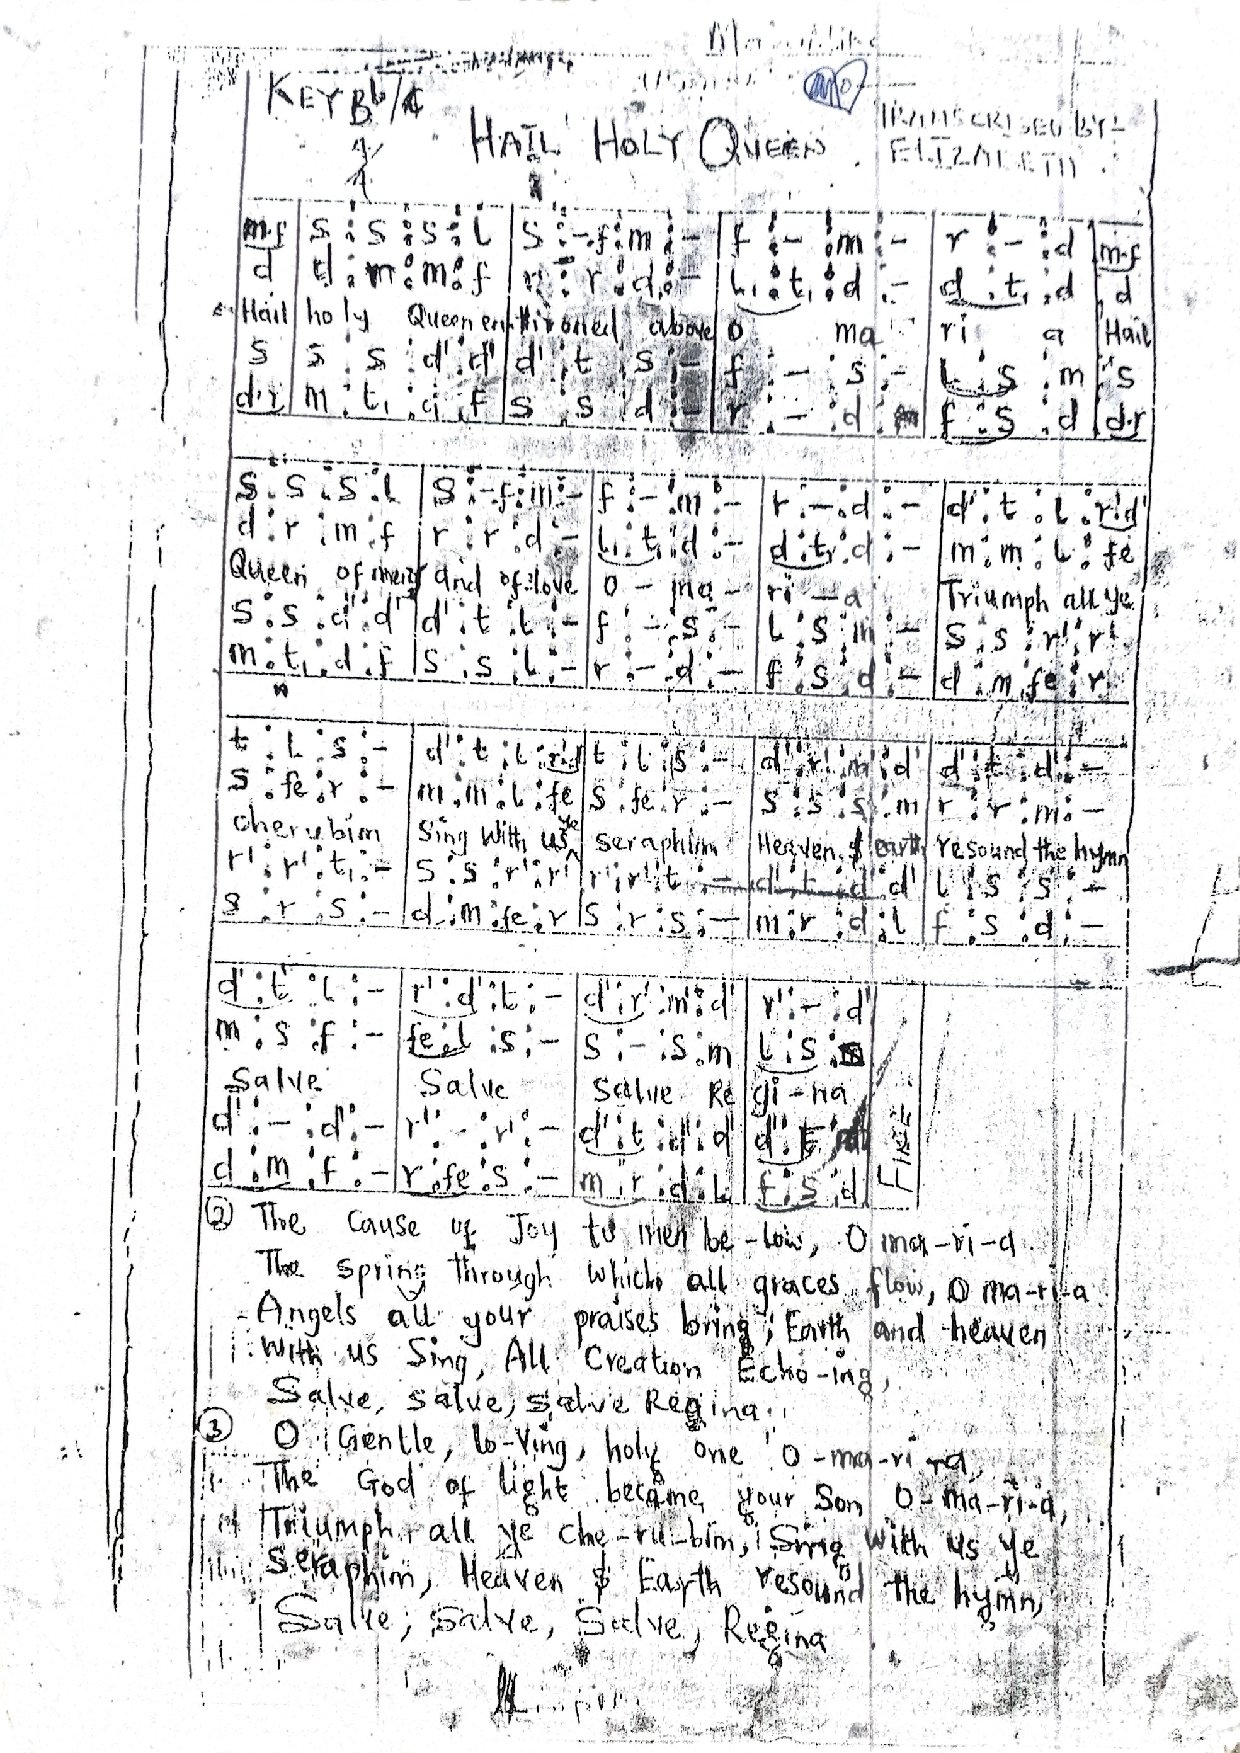 KEY Bb/C
HAIL HOLY QUEEN. TRANSCRISED BY-
ELIZABETH.
m.f | s : s : s : l | s : -.f : m : - | f : - : m : - | r : - : d | m.f
d | d : m : m : f | r : r : d : - | l, : t, : d : - | d : t, : d | d
Hail holy Queen enthroned above O ma ri a Hail
s | s : s : d' : d' | d' : t : s : - | f : - : s : - | l : s : m | s
d.r | m : t, : d : f | s : s : d : - | r : - : d | f : s : d | d.r
s : s : s : l | s : -.f : m : - | f : - : m : - | r : - : d : - | d' : t : l : r'.d'
d : r : m : f | r : r : d : - | l, : t, : d : - | d : t, : d : - | m : m : l : fe
Queen of mercy and of love O - ma - ri - a Triumph all ye
s : s : d' : d' | d' : t : l : - | f : - : s : - | l : s : m : - | s : s : r' : r'
m : t, : d : f | s : s : l : - | r : - : d : - | f : s : d : - | d : m : fe : r
t : l : s : - | d' : t : l : r'.d' | t : l : s : - | d' : r' : m' : d' | d' : t : d' : -
s : fe : r : - | m : m : l : fe | s : fe : r : - | s : s : s : m | r : r : m : -
cherubim Sing with us ye seraphim Heaven $ earth resound the hymn
r' : r' : t, : - | s : s : r' : r' | r' : r' : t : - | d' : t : d' : d' | l : s : s : -
s : r : s : - | d : m : fe : r | s : r : s : - | m : r : d : l | f : s : d : -
d' : t : l : - | r' : d' : t : - | d' : r' : m' : d' | r' : - : d'
m : s : f : - | fe : l : s : - | s : - : s : m | l : s : m
Salve Salve Salve Re gi-na
d' : - : d' : - | r' : - : r' : - | d' : t : d' : d' | d' : t
d : m : f : - | r : fe : s : - | m : r : d : l | f : s : d
FINE
② The cause of Joy to men be-low, O ma-ri-a.
The spring through which all graces flow, O ma-ri-a
Angels all your praises bring; Earth and heaven
With us Sing, All Creation Echo-ing,
Salve, salve, salve Regina.
③ O Gentle, lo-ving, holy one O-ma-ri-a,
The God of light became your Son O-ma-ri-a,
Triumph all ye che-ru-bim, Sing with us ye
Seraphim, Heaven $ Earth resound the hymn,
Salve, Salve, Salve, Regina